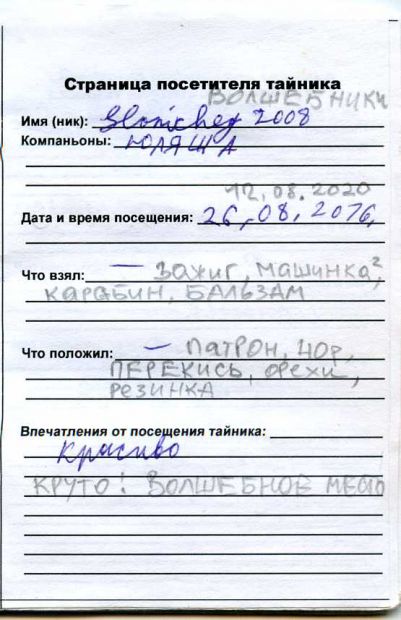 Страница посетителя тайника
ВОЛШЕБНИКИ
Имя (ник): Slonichey 2008
Компаньоны: ЮЛЯША
12.08.2020
Дата и время посещения: 26.08.2016,
Что взял: — ЗАЖИГ, МАШИНКА,
КАРАБИН, БАЛЬЗАМ
Что положил: — ПАТРОН,
ПЕРЕКИСЬ, ОРЕХИ,
РЕЗИНКА
Впечатления от посещения тайника:
Красиво
КРУТО! ВОЛШЕБНОЕ МЕСТО